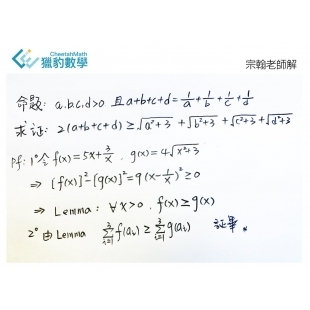 CheetahMath
獵豹數學
宗翰老師解
命題: a.b.c.d>0 且 a+b+c+d=1/a+1/b+1/c+1/d
求証: 2(a+b+c+d) ≥ √(a²+3) + √(b²+3) + √(c²+3) + √(d²+3)
pf: 1° 令 f(x)=5x+3/x . g(x)=4√(x²+3)
⇒ [f(x)]²-[g(x)]²=9(x-1/x)² ≥0
⇒ Lemma: ∀x>0. f(x)≥g(x)
2° 由 Lemma Σf(aᵢ) ≥ Σg(aᵢ) 証畢.